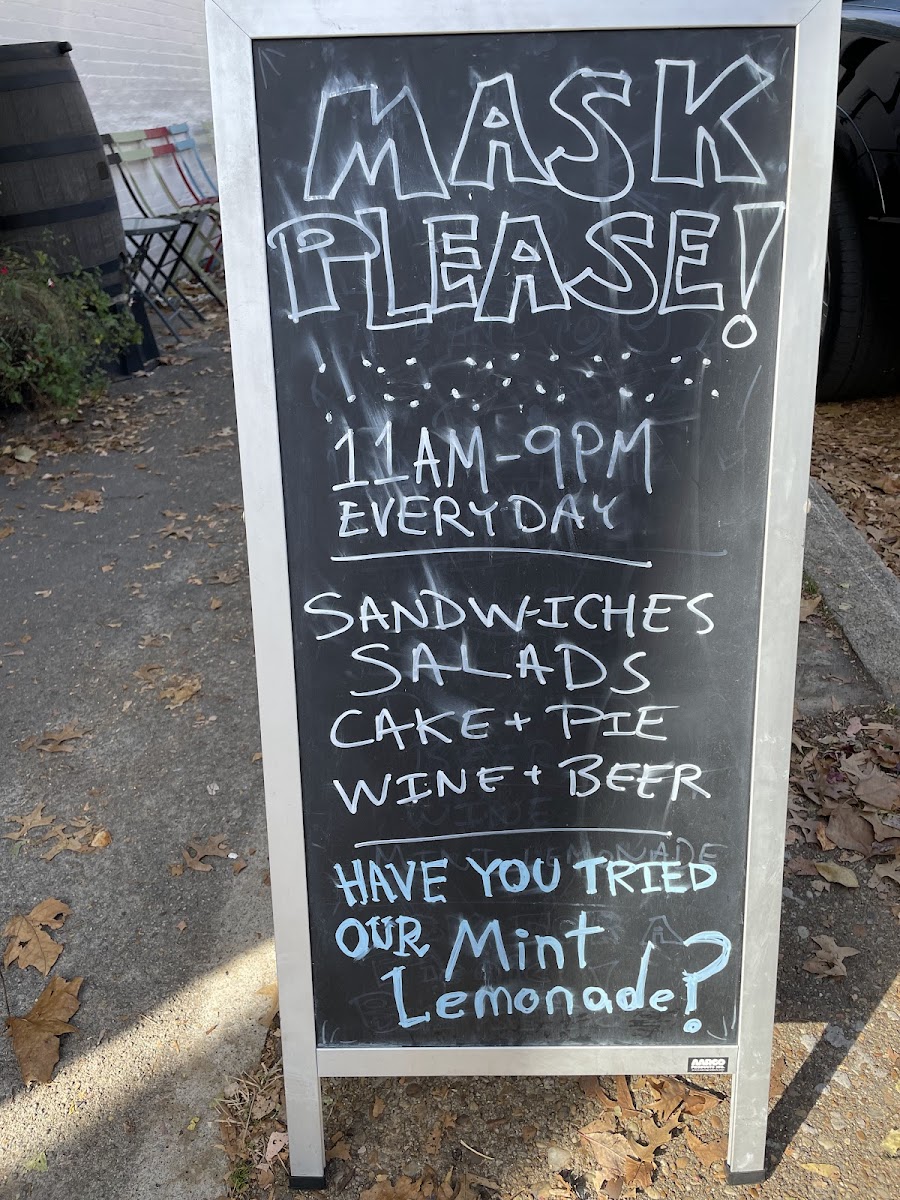 MASK
PLEASE!
11AM-9PM
EVERYDAY
SANDWICHES
SALADS
CAKE + PIE
WINE + BEER
HAVE YOU TRIED
OUR Mint
Lemonade?
AARCO